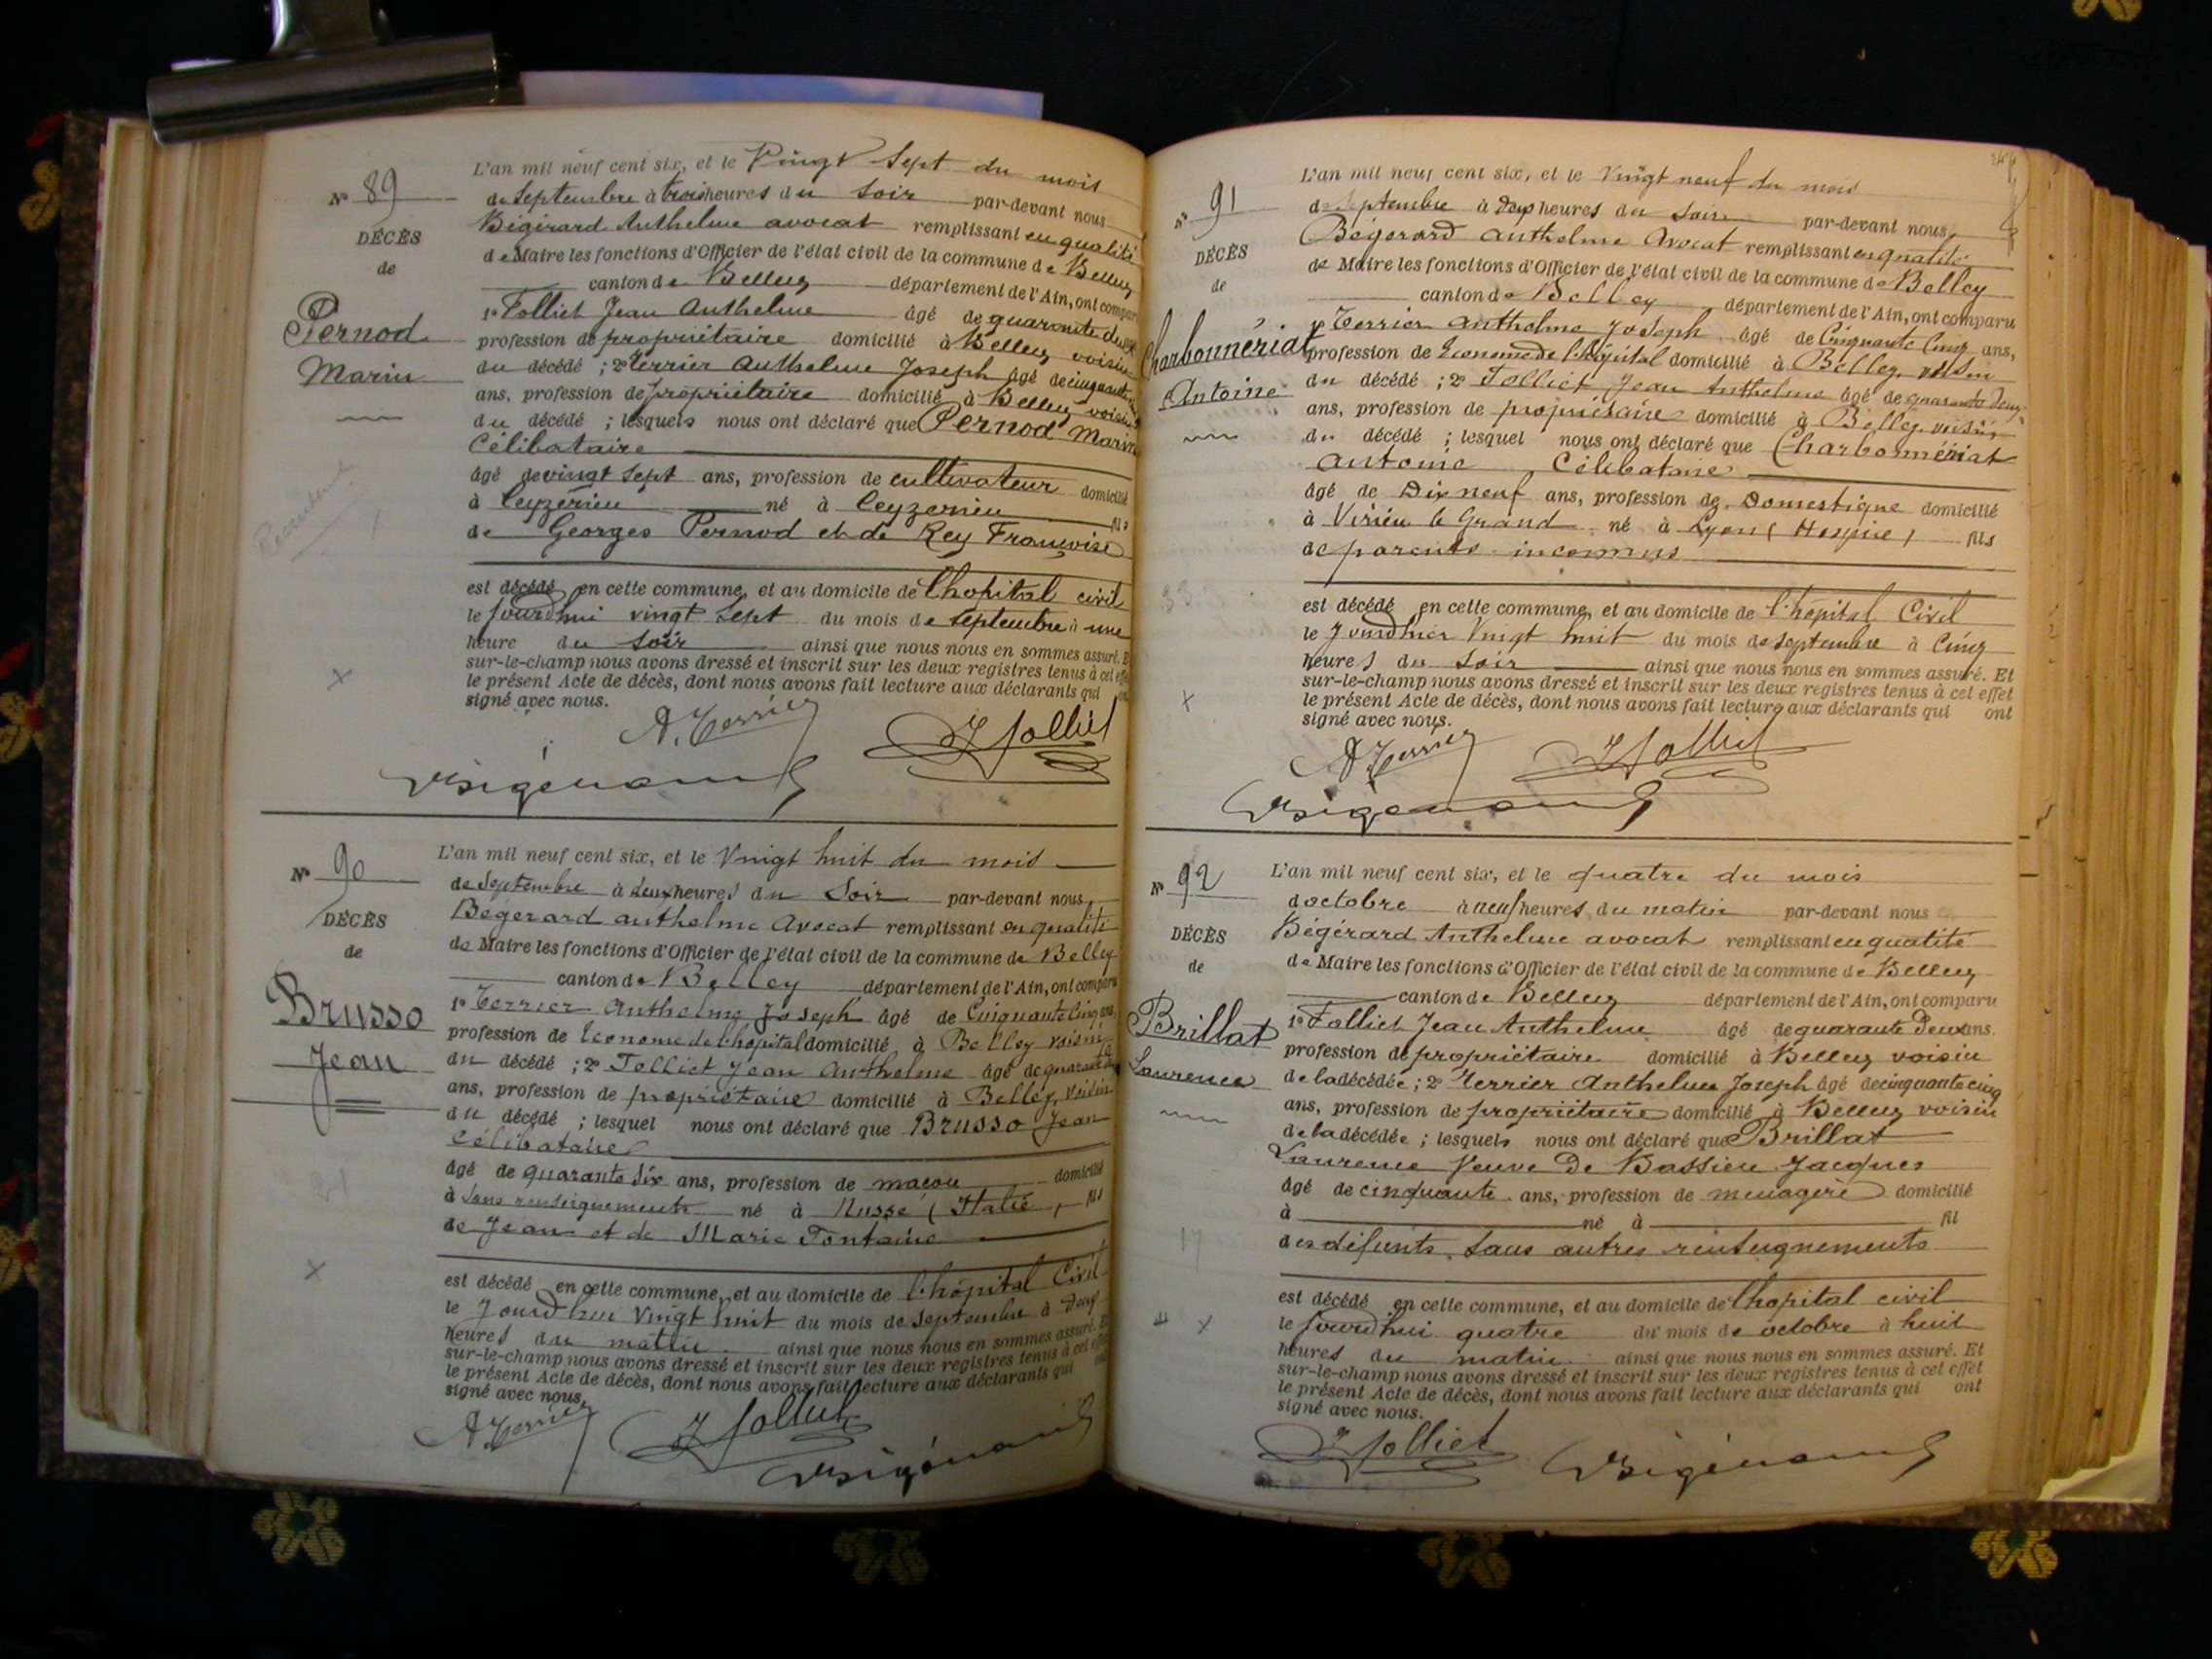 L'an mil neuf cent six, et le Vingt Sept du mois
N° 89
de Septembre à trois heures du Soir par-devant nous
Bégérard Anthelme avocat remplissant en qualité
DÉCÈS
de Maire les fonctions d'Officier de l'état civil de la commune de Belley
de
canton de Belley département de l'Ain, ont compar
1° Folliet Jean Anthelme âgé de quarante deux
Pernod
profession de propriétaire domicilié à Belley voisin
Marin
du décédé ; 2° Terrier Anthelme Joseph âgé de cinquante
ans, profession de propriétaire domicilié à Belley voisin
du décédé ; lesquels nous ont déclaré que Pernod Marin
Célibataire
âgé de vingt Sept ans, profession de cultivateur domicilié
à Ceyzérieu né à Ceyzerieu fils
de Georges Pernod et de Rey Françoise
est décédé en cette commune, et au domicile de l'hopital civil
le jourd'hui vingt Sept du mois de Septembre à une
heure du Soir ainsi que nous nous en sommes assuré. E
sur-le-champ nous avons dressé et inscrit sur les deux registres tenus à cet effe
le présent Acte de décès, dont nous avons fait lecture aux déclarants qui on
signé avec nous.
A. Terrier
J Folliet
Bégérard
L'an mil neuf cent six, et le Vingt huit du mois
N° 90
de Septembre à deux heures du Soir par-devant nous
DÉCÈS
Bégerard anthelme Avocat remplissant en qualité
de
de Maire les fonctions d'Officier de l'état civil de la commune de Belley
canton de Belley département de l'Ain, ont comparu
Brusso
1° Terrier Anthelme Joseph âgé de Cinquante Cinq ans,
profession de Econome de l'hôpital domicilié à Belley voisin
Jean
du décédé ; 2° Folliet Jean Anthelme âgé de quarante
ans, profession de propriétaire domicilié à Belley, voisin
du décédé ; lesquel nous ont déclaré que Brusso Jean
Célibataire
âgé de quarante Six ans, profession de maçon domicilié
à Sans renseignements né à Nussé (Italie, fils
de Jean et de Marie Fontaine
est décédé en cette commune, et au domicile de l'hôpital Civil
le Jourd'hui Vingt huit du mois de Septembre à deux
heures du matin ainsi que nous nous en sommes assuré. E
sur-le-champ nous avons dressé et inscrit sur les deux registres tenus à cet effe
le présent Acte de décès, dont nous avons fait lecture aux déclarants qui
signé avec nous.
A. Terrier
J Folliet
Bégérard
L'an mil neuf cent six, et le Vingt neuf du mois
N° 91
de Septembre à deux heures du Soir par-devant nous,
DÉCÈS
Bégerard anthelme Avocat remplissant en qualité
de
de Maire les fonctions d'Officier de l'état civil de la commune de Belley
canton de Belley département de l'Ain, ont comparu
Charbonnériat
1° Terrier anthelme Joseph âgé de Cinquante Cinq ans,
profession de Econome de l'hôpital domicilié à Belley, voisin
Antoine
du décédé ; 2° Folliet Jean Anthelme âgé de quarante deux
ans, profession de propriétaire domicilié à Belley, voisin
du décédé ; lesquel nous ont déclaré que Charbonnériat
Antoine Célibataire
âgé de Dix neuf ans, profession de Domestique domicilié
à Virieu le Grand né à Lyon (Hospice) fils
de parents inconnus
est décédé en cette commune, et au domicile de l'hôpital Civil
le Jourd'hier Vingt huit du mois de Septembre à Cinq
heures du Soir ainsi que nous nous en sommes assuré. Et
sur-le-champ nous avons dressé et inscrit sur les deux registres tenus à cet effet
le présent Acte de décès, dont nous avons fait lecture aux déclarants qui ont
signé avec nous.
A. Terrier
J Folliet
Bégérard
L'an mil neuf cent six, et le quatre du mois
N° 92
d'octobre à neuf heures du matin par-devant nous
DÉCÈS
Bégérard Anthelme avocat remplissant en qualité
de
de Maire les fonctions d'Officier de l'état civil de la commune de Belley
canton de Belley département de l'Ain, ont comparu
Brillat
1° Folliet Jean Anthelme âgé de quarante Deux ans.
profession de propriétaire domicilié à Belley voisin
Laurence
de la décédée ; 2° Terrier Anthelme Joseph âgé de cinquante cinq
ans, profession de propriétaire domicilié à Belley voisin
de la décédée ; lesquels nous ont déclaré que Brillat
Laurence Veuve De Bassieu Jacques
âgé de cinquante ans, profession de menagère domicilié
à né à fil
des défunts, Sans autres renseignements
est décédé en cette commune, et au domicile de l'hopital civil
le jourd'hui quatre du mois de octobre à huit
heures du matin ainsi que nous nous en sommes assuré. Et
sur-le-champ nous avons dressé et inscrit sur les deux registres tenus à cet effet
le présent Acte de décès, dont nous avons fait lecture aux déclarants qui ont
signé avec nous.
J Folliet
Bégérard